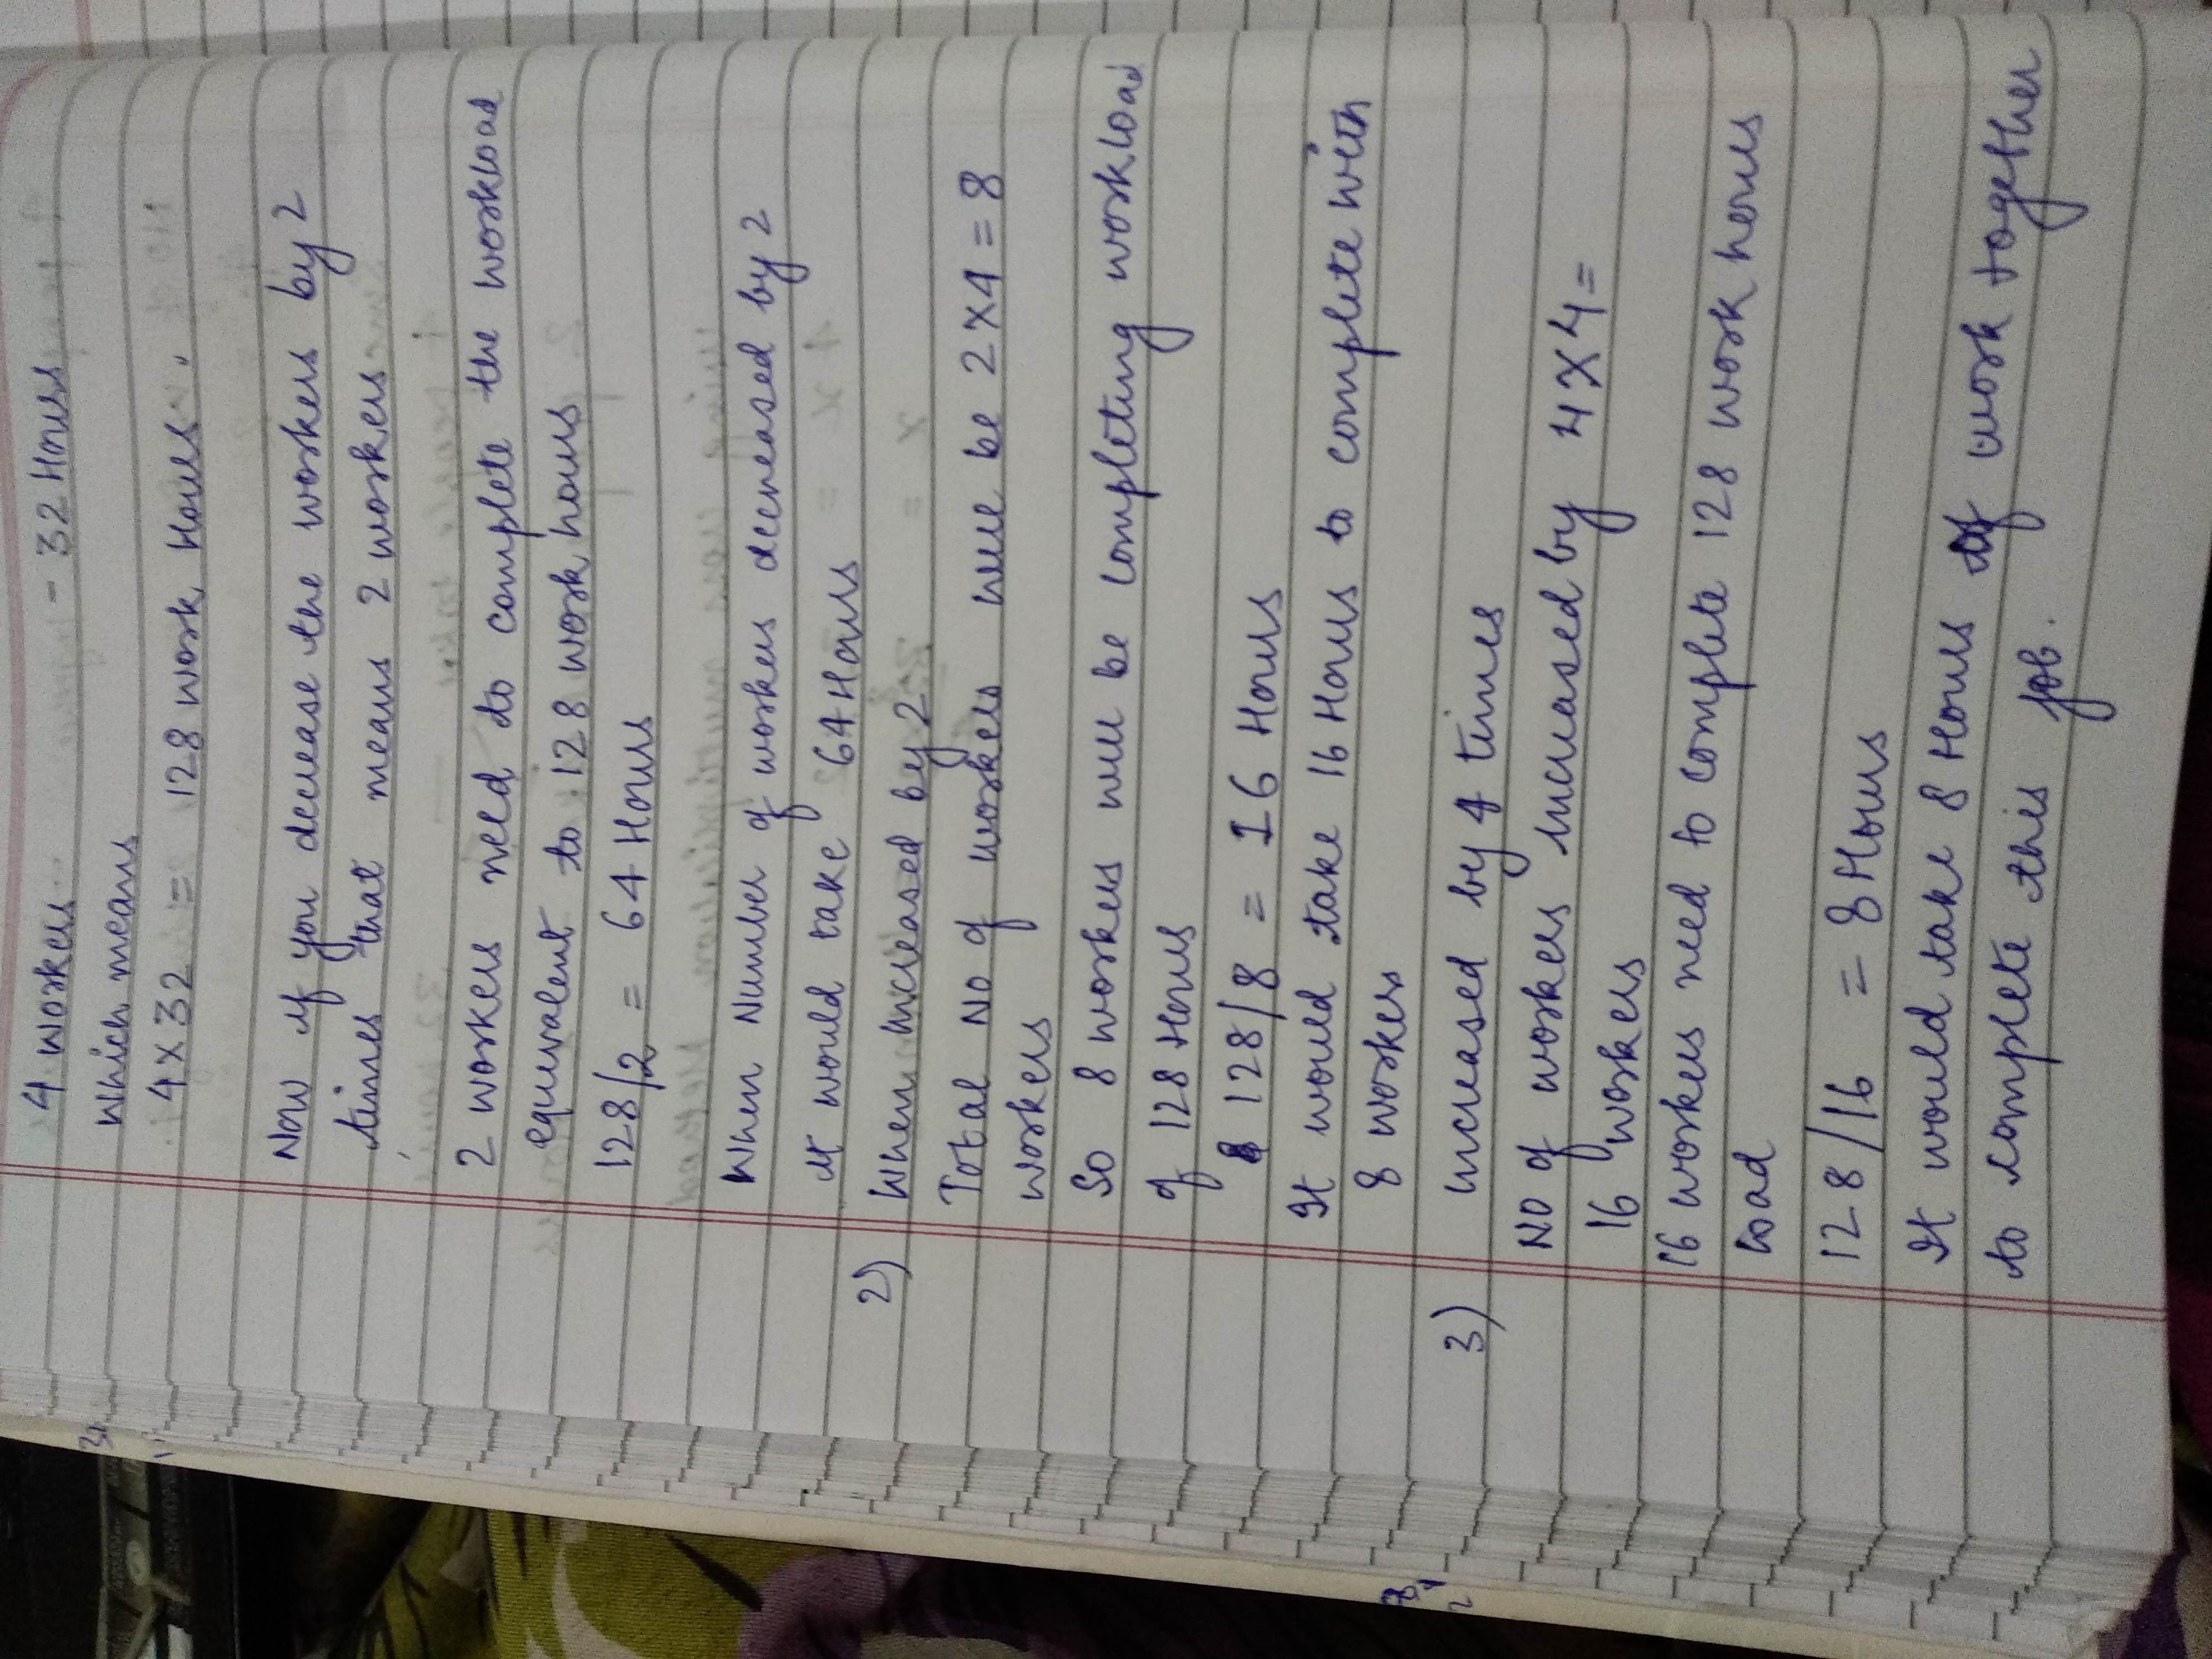 4 workers - 32 Hours
which means
4 x 32 = 128 work Hours.
Now if you decrease the workers by 2
times that means 2 workers
2 workers need to complete the workload
equivalent to 128 work hours
128/2 = 64 Hours
When Number of workers decreased by 2
it would take 64 Hours
2) When increased by 2
Total No of workers will be 2 x 4 = 8
workers
So 8 workers will be completing workload
of 128 Hours
128/8 = 16 Hours
It would take 16 Hours to complete with
8 workers
3) increased by 4 times
No of workers increased by 4 x 4 =
16 workers
16 workers need to complete 128 work hours
load
128/16 = 8 Hours
It would take 8 Hours if work together
to complete this job.